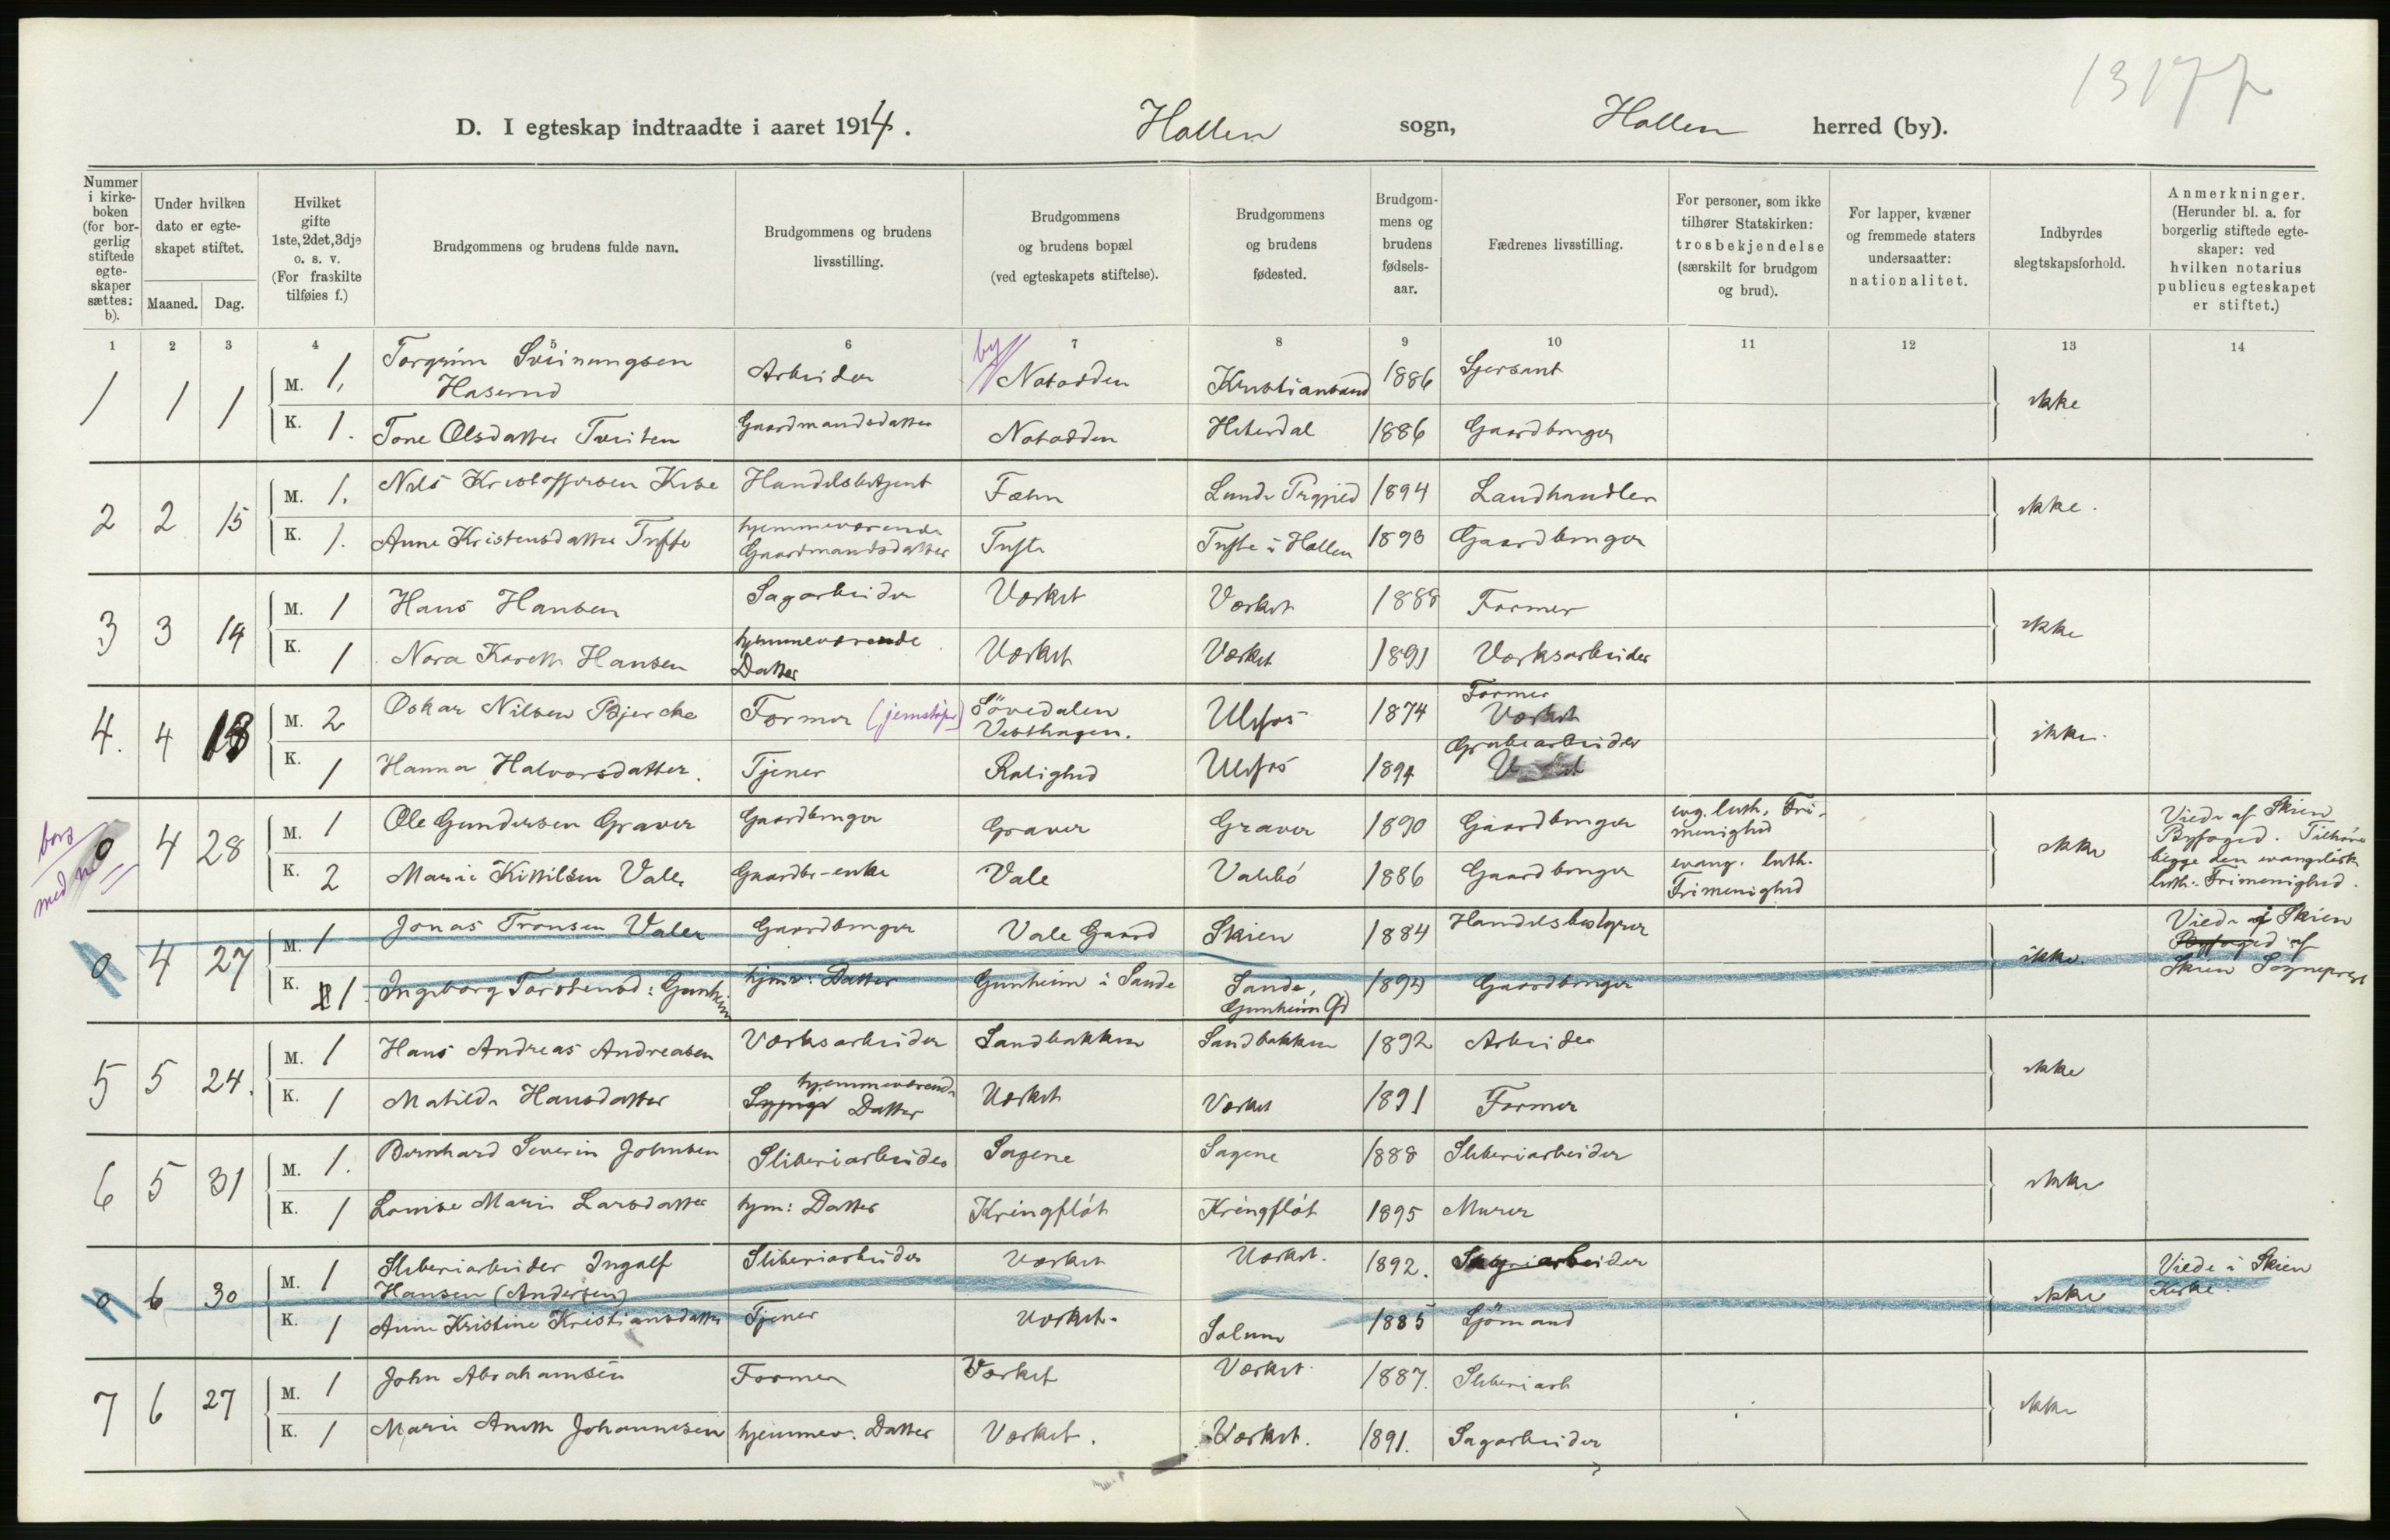 13177
D. I egteskap indtraadte i aaret 1914. Hollen sogn, Hollen herred (by).
Nummer i kirkeboken (for borgerlig stiftede egteskaper sættes: b).
Under hvilken dato er egteskapet stiftet.
Maaned. Dag.
Hvilket gifte 1ste, 2det, 3dje o. s. v. (For fraskilte tilføies f.)
Brudgommens og brudens fulde navn.
Brudgommens og brudens livsstilling.
Brudgommens og brudens bopæl (ved egteskapets stiftelse).
Brudgommens og brudens fødested.
Brudgommens og brudens fødselsaar.
Fædrenes livsstilling.
For personer, som ikke tilhører Statskirken: trosbekjendelse (særskilt for brudgom og brud).
For lapper, kvæner og fremmede staters undersaatter: nationalitet.
Indbyrdes slegtskapsforhold.
Anmerkninger. (Herunder bl. a. for borgerlig stiftede egteskaper: ved hvilken notarius publicus egteskapet er stiftet.)
1 2 3 4 5 6 7 8 9 10 11 12 13 14
1 1 1 M. 1, Torgrim Sveinungsen Haserud Arbeider by Notodden Kristiansand 1886 Sjersant ikke
K. 1. Tone Olsdatter Tveiten Gaardmandsdatter Notodden Hiterdal 1886 Gaardbruger
2 2 15 M. 1. Nils Kristoffersen Kise Handelsbetjent Fæhn Lunde Prgjeld 1894 Landhandler ikke.
K. 1. Anne Kristensdatter Tufte hjemmeværende Gaardmandsdatter Tufte Tufte i Hollen 1893 Gaardbruger
3 3 14 M. 1 Hans Hansen Sagarbeider Værket Værket 1888 Former ikke
K. 1 Nora Karette Hansen hjemmeværende Datter Værket Værket 1891 Værksarbeider
4. 4 18 M. 2 Oskar Nilsen Bjercke Former (jernstøper) Sövedalen Vesthagen. Ulefos 1874 Former Værket ikke.
K. 1 Hanna Halvorsdatter. Tjener Rolighed Ulefos 1894 Grubearbeider
bors med nº 0 4 28 M. 1 Ole Gundersen Graver Gaardbruger Graver Graver 1890 Gaardbruger evg. luth. Frimenighed ikke Viede af Skien Byfoged. Tilhører begge den evangelisk luth. Frimenighed.
K. 2 Marie Kittilsen Vale Gaardbr-enke Vale Valebö 1886 Gaardbruger evang. luth. Frimenighed
0 4 27 M. 1 Jonas Tronsen Valer Gaardbruger Vale Gaard Skien 1884 Handelsbestyrer ikke. Viede af Skien Byfoged af Skien Sogneprest
K. 1. Ingeborg Torstensd: Gunheim hjmv: Datter Gunheim i Sande Sande, Gunheim Gd 1893 Gaardbruger
5 5 24. M. 1 Hans Andreas Andreasen Værksarbeider Sandbakken Sandbakken 1892 Arbeider ikke
K. 1 Matilde Hansdatter Sypige hjemmeværende Datter Værket Værket 1891 Former
6 5 31 M. 1. Bernhard Severin Johnsen Sliberiarbeider Sagene Sagene 1888 Sliberiarbeider ikke
K. 1 Louise Marie Larsdatter hjm: Datter Kringflöt Kringflöt 1895 Murer
0 6 30 M. 1 Sliberiarbeider Ingolf Hansen (Andersen) Sliberiarbeider Værket Værket. 1892. arbeider ikke Viede i Skien Kirke.
K. 1 Anne Kristine Kristiansdatter Tjener Værket. Solum 1885 Sjömand
7 6 27 M. 1 John Abrahamsen Former Værket Værket 1887. Sliberiarb ikke
K. 1 Marie Anette Johannesen hjemmev. Datter Værket. Værket. 1891. Sagarbeider